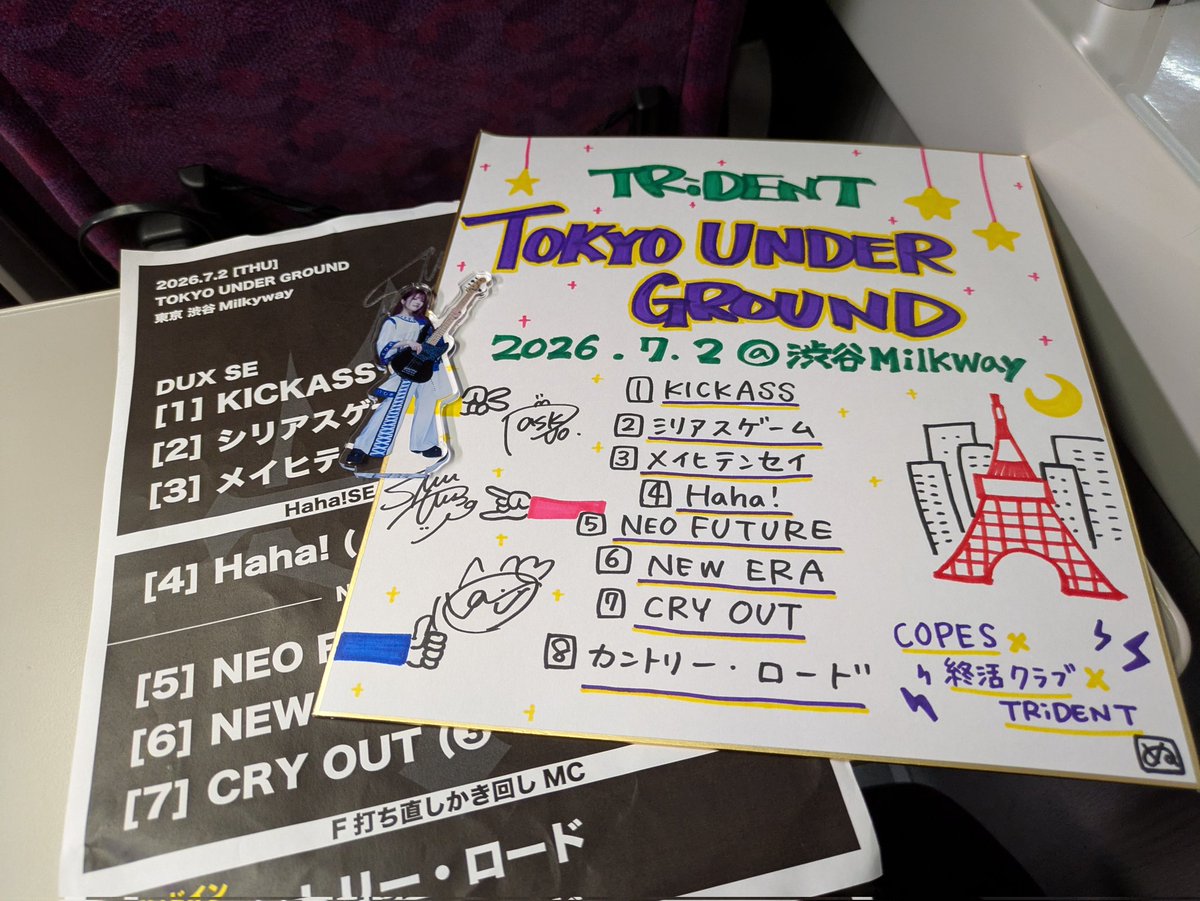 2026.7.2 [THU]
TOKYO UNDER GROUND
東京 渋谷 Milkyway
DUX SE
[1] KICKASS
[2] シリアスゲ
[3] メイヒテ
Haha!SE
[4] Haha! (
[5] NEO
[6] NEW
[7] CRY OUT (
F 打ち直しかき回し MC
ントリー・ロード
TRiDENT
TOKYO UNDER
GROUND
2026.7.2@渋谷Milkway
1 KICKASS
2 シリアスゲーム
3 メイヒテンセイ
4 Haha!
5 NEO FUTURE
6 NEW ERA
7 CRY OUT
8 カントリー・ロード
COPES×
終活クラブ×
TRiDENT